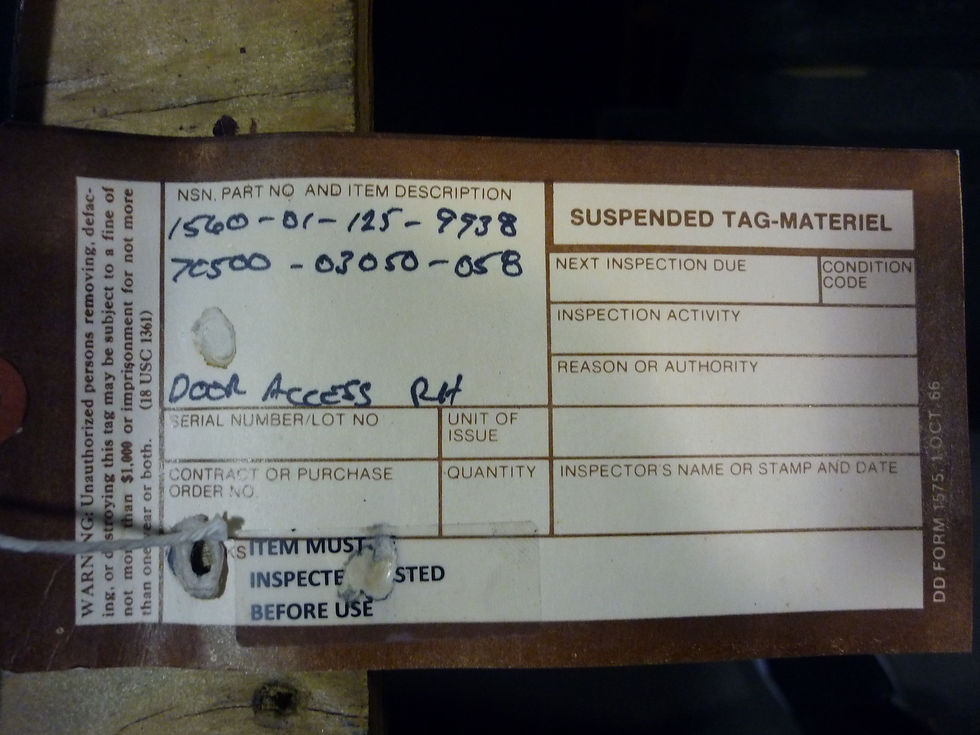 NSN, PART NO AND ITEM DESCRIPTION
1560-01-125-9938
70500-03050-058
DOOR ACCESS RH
SERIAL NUMBER/LOT NO
UNIT OF
ISSUE
CONTRACT OR PURCHASE
ORDER NO.
QUANTITY
KS
ITEM MUST
INSPECTE STED
BEFORE USE
SUSPENDED TAG-MATERIEL
NEXT INSPECTION DUE
CONDITION
CODE
INSPECTION ACTIVITY
REASON OR AUTHORITY
INSPECTOR'S NAME OR STAMP AND DATE
DD FORM 1575, 1 OCT 66
WARN NG: Unauthorized persons removing, defac-
ing, or destroying this tag may be subject to a fine of
not more than $1,000 or imprisonment for not more
than one year or both. (18 USC 1361)